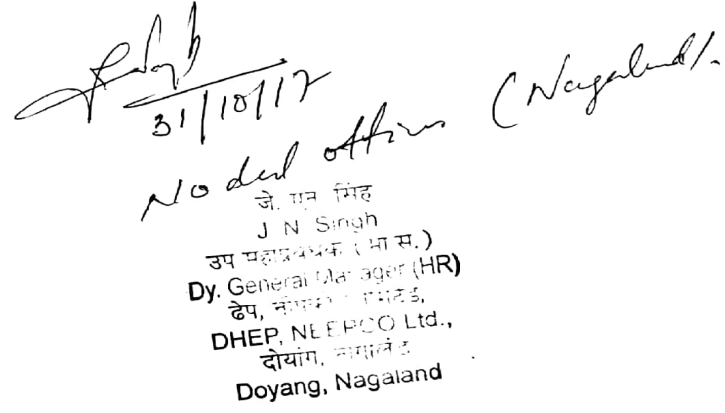 31/10/17
Nodal officer (Nagaland).
जे. एन सिंह
J N Singh
उप महाप्रबंधक (मा स.)
Dy. General Manager (HR)
ढेप, लिमिटेड,
DHEP, NEEPCO Ltd.,
दोयांग, नागालैंड
Doyang, Nagaland